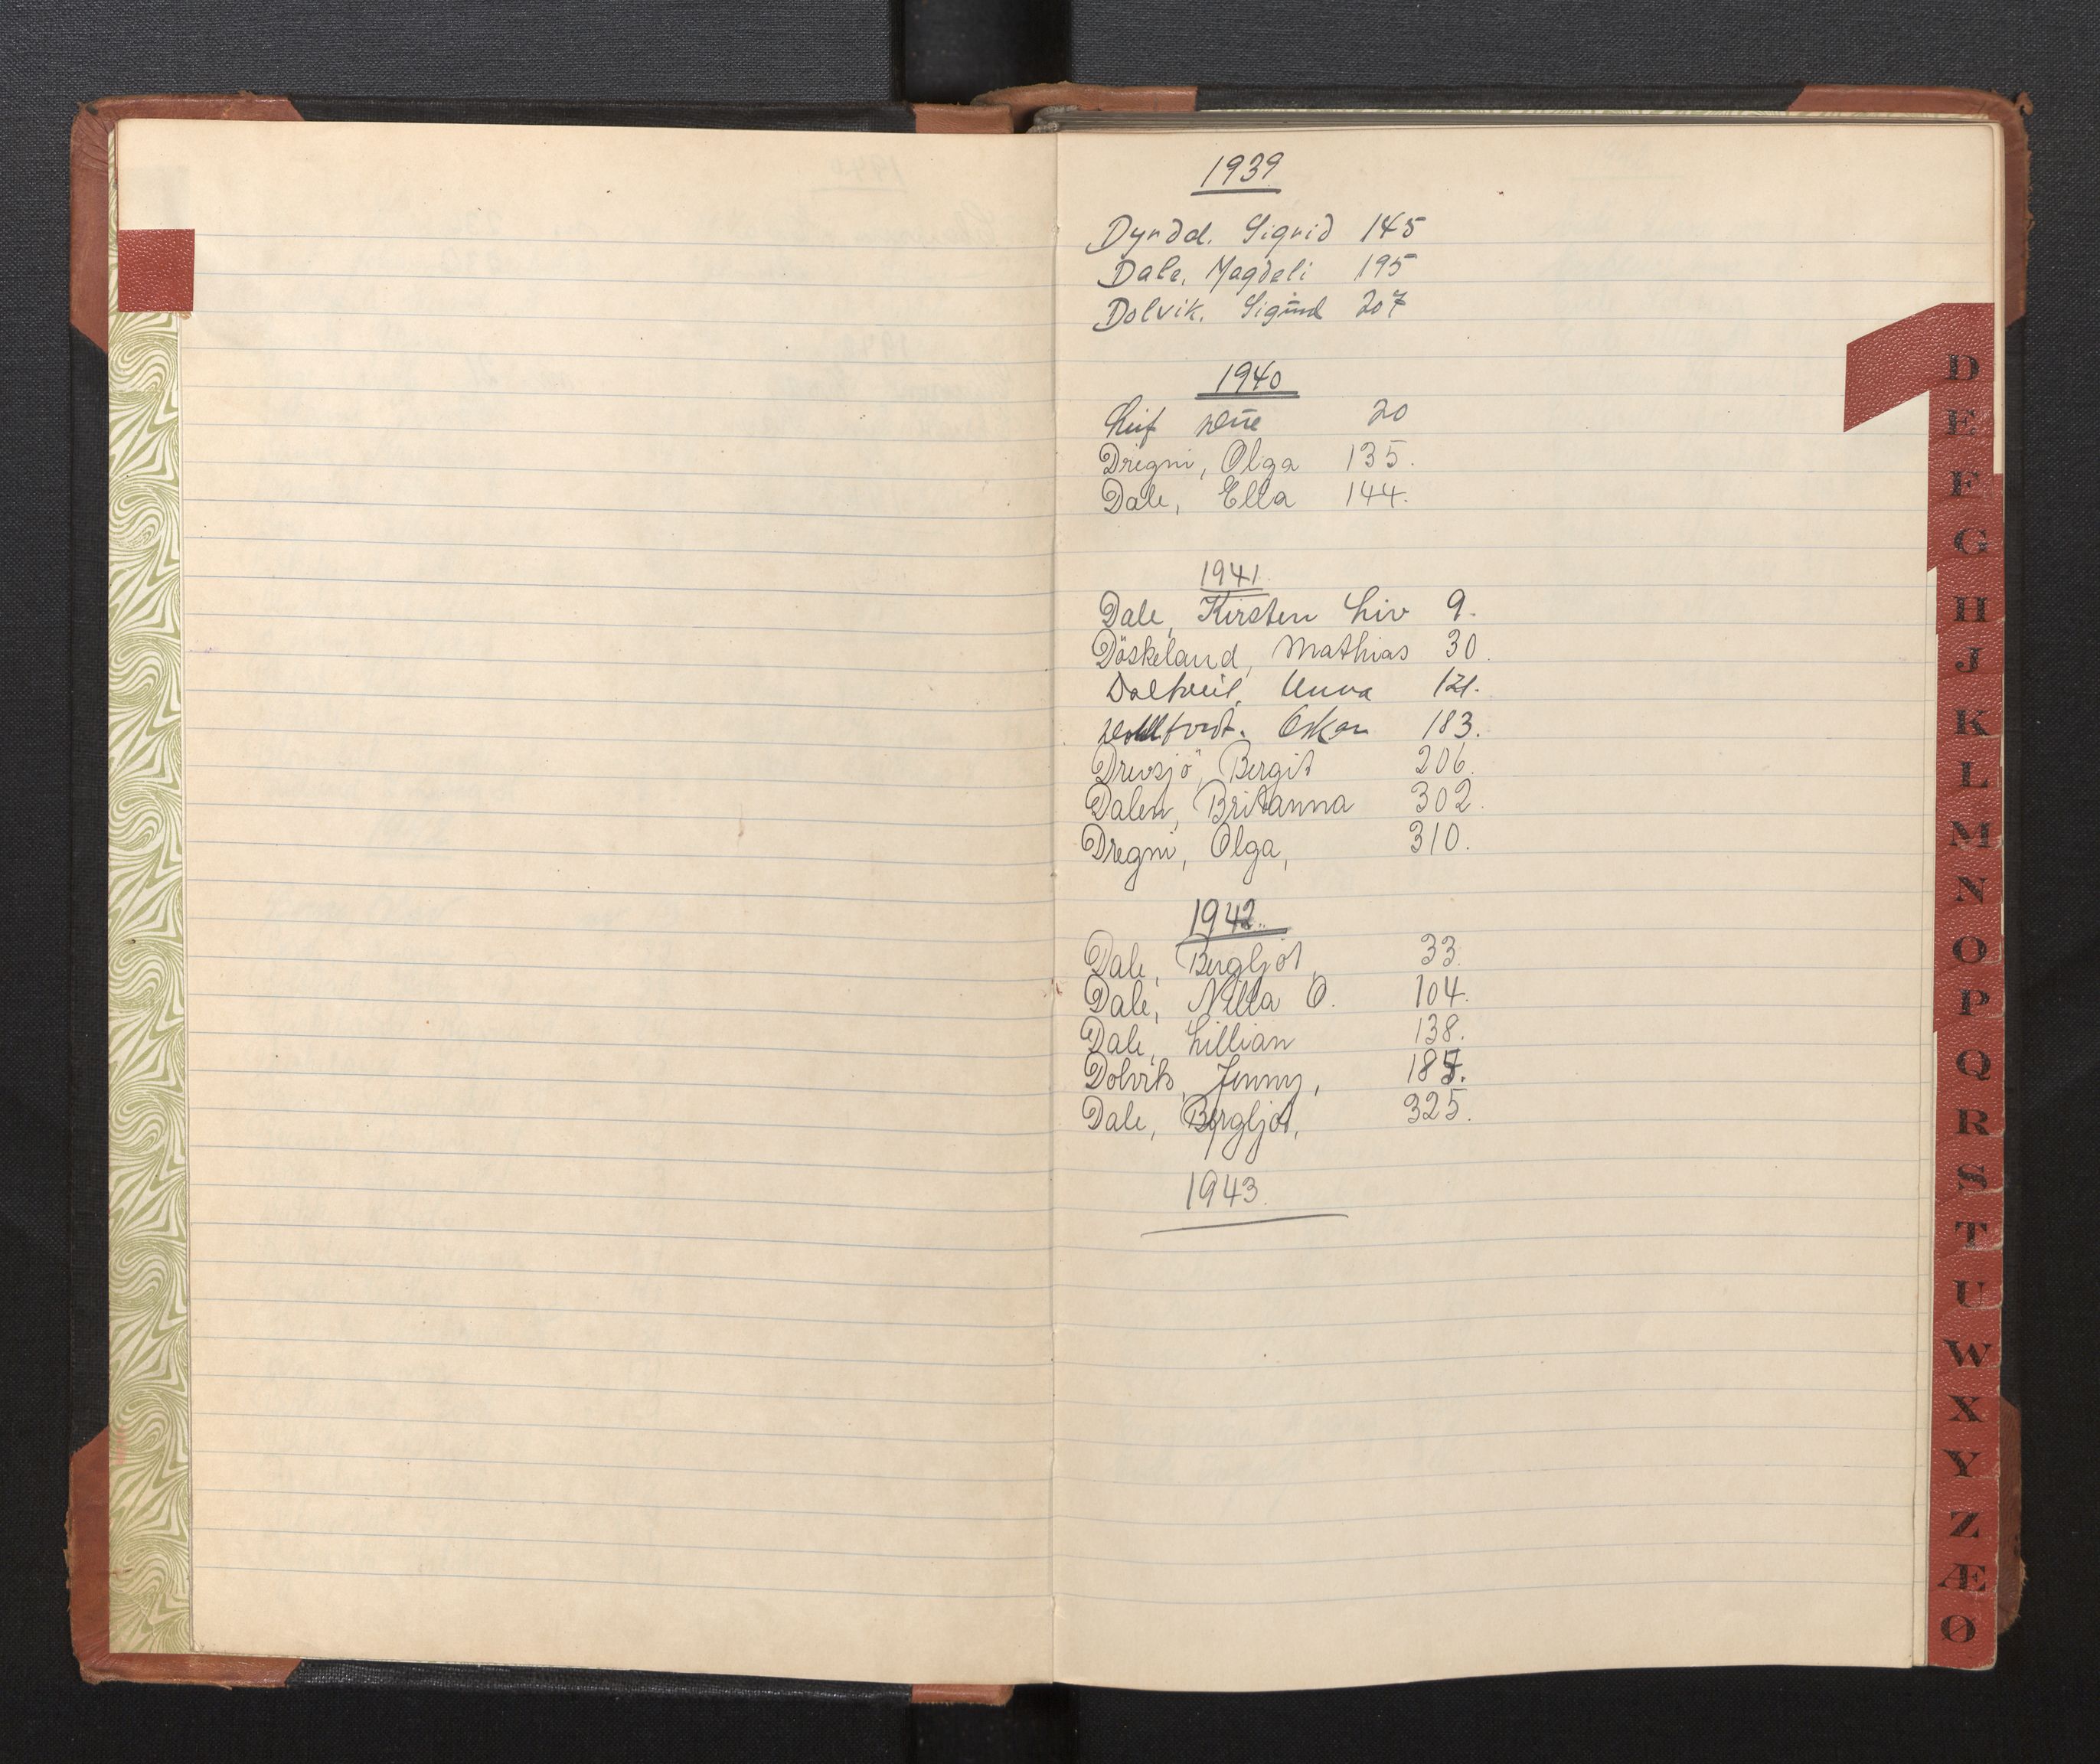 1939
Dyrdal. Sigrid 145
Dale. Magdeli 195
Dolvik. Sigūnd 207
1940
Leif 20
Dregni, Olga 135.
Dale, Ella 144.
1941.
Dale, Kirsten Liv 9.
Döskeland, Mathias 30.
Unna 121.
Oskar 183.
Drevsjö, Bergit 206.
Dalen, Britanna 302.
Dregni, Olga, 310.
1942.
Dale, Bergljot, 33.
Dale, Nilla O. 104.
Dale, Lillian 138.
Dolvik, Jenny,
Dale, Bergljot, 325.
1943.
D
E
F
G
H
J
K
L
M
N
O
P
Q
R
S
T
U
W
X
Y
Z
Æ
Ø